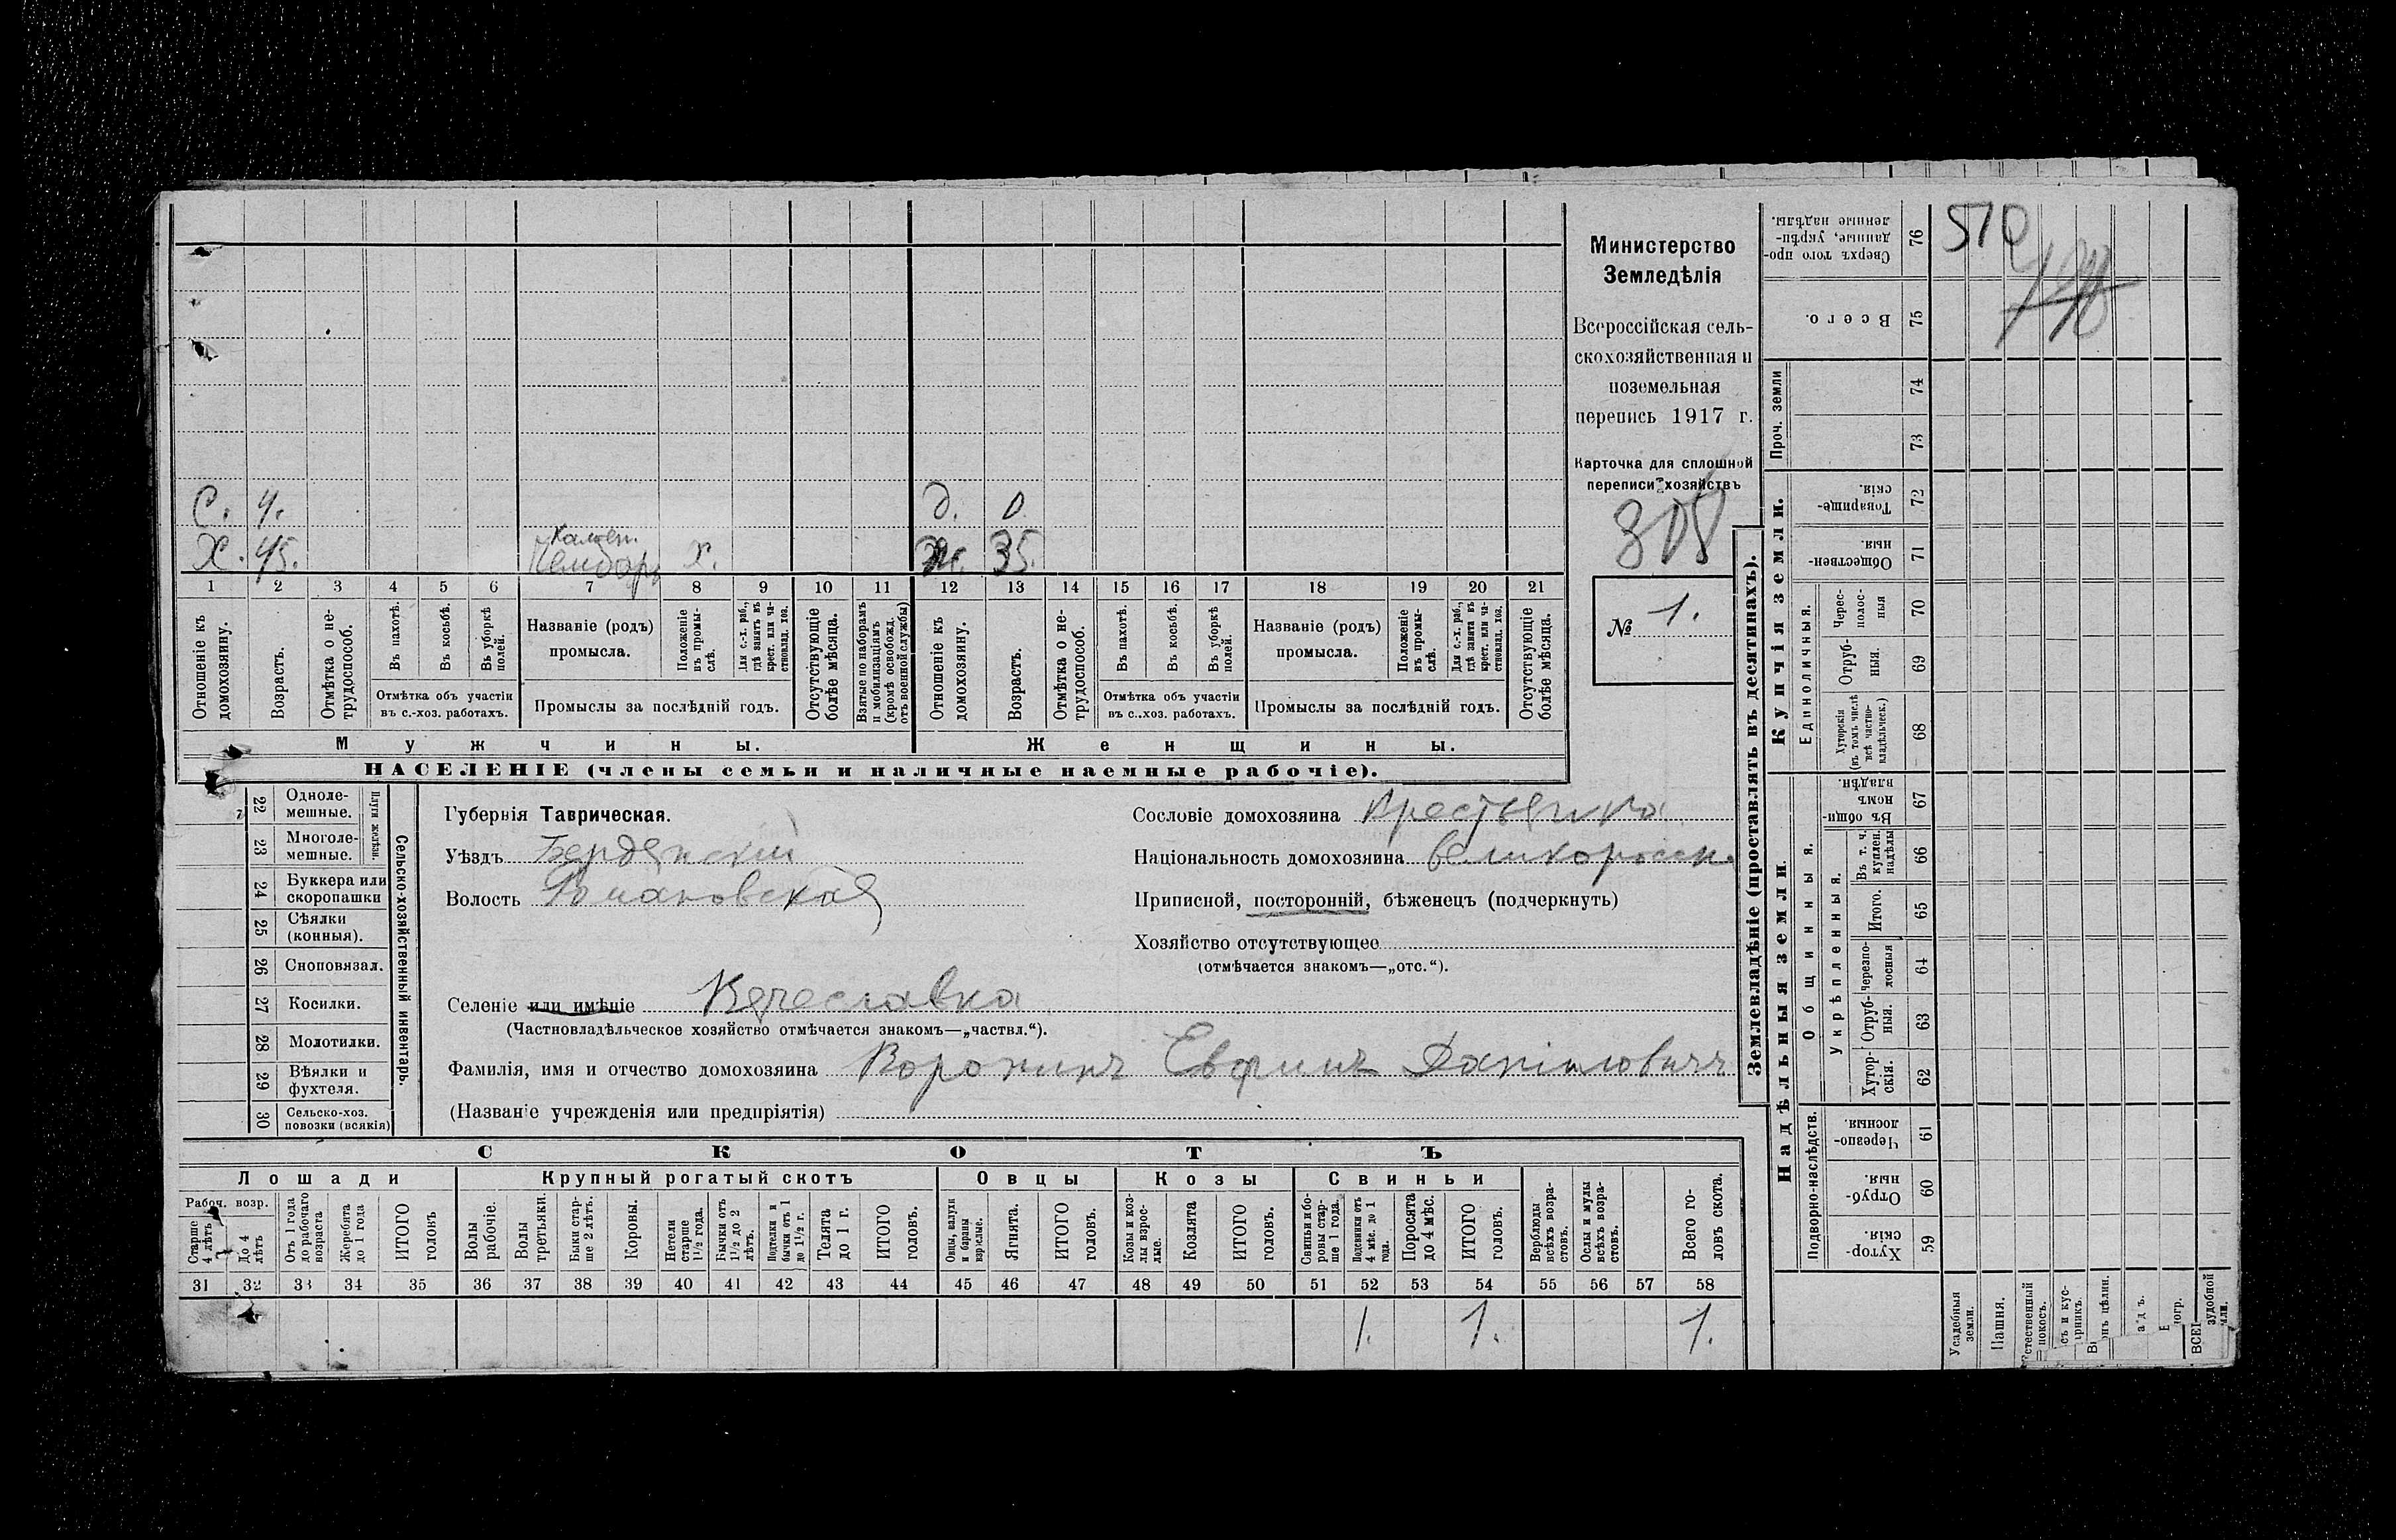 Министерство
Земледѣлія
Всероссійская сель-
скохозяйственная и
поземельная
перепись 1917 г.
Карточка для сплошной
переписи хозяйствъ
308
№ 1.
510
С. 4. д. 0
Х. 45. Х. Ж. 35.
1 2 3 4 5 6 7 8 9 10 11 12 13 14 15 16 17 18 19 20 21
Отношеніе къ домохозяину.
Возрастъ.
Отмѣтка о не-трудоспособ.
Въ пахотѣ.
Въ косьбѣ.
Въ уборкѣ полей.
Отмѣтка объ участіи
въ с.-хоз. работахъ.
Названіе (родъ)
промысла.
Положеніе въ промы-слѣ.
Для с.-х. раб., гдѣ занятъ въ крест. или ча-стновлад. хоз.
Промыслы за послѣдній годъ.
Отсутствующіе болѣе мѣсяца.
Взятые по наборамъ и мобилизаціямъ (кромѣ освобожд. отъ военной службы)
Отношеніе къ домохозяину.
Возрастъ.
Отмѣтка о не-трудоспособ.
Въ пахотѣ.
Въ косьбѣ.
Въ уборкѣ полей.
Отмѣтка объ участіи
въ с.-хоз. работахъ.
Названіе (родъ)
промысла.
Положеніе въ промы-слѣ.
Для с.-х. раб., гдѣ занята въ крест. или ча-стновлад. хоз.
Промыслы за послѣдній годъ.
Отсутствующіе болѣе мѣсяца.
Мужчины. Женщины.
НАСЕЛЕНІЕ (члены семьи и наличные наемные рабочіе).
22 Одноле-мешные.
23 Многоле-мешные.
Плуги желѣзн.
24 Буккера или скоропашки
25 Сѣялки (конныя).
26 Сноповязал.
27 Косилки.
28 Молотилки.
29 Вѣялки и фухтеля.
30 Сельско-хоз. повозки (всякія)
Сельско-хозяйственный инвентарь.
Губернія Таврическая.
Уѣздъ Бердянскій
Волость Романовская
Селеніе или имѣніе Вячеславка
(Частновладѣльческое хозяйство отмѣчается знакомъ—„частвл.“).
Фамилія, имя и отчество домохозяина Воронинъ Евфимъ Даніиловичъ
(Названіе учрежденія или предпріятія)
Сословіе домохозяина Крестьянка
Національность домохозяина великоросск.
Приписной, посторонній, бѣженецъ (подчеркнуть)
Хозяйство отсутствующее
(отмѣчается знакомъ—„отс.“).
СКОТЪ
Лошади Крупный рогатый скотъ Овцы Козы Свиньи
Рабоч. возр.
Старше 4 лѣтъ
До 4 лѣтъ
Отъ 1 года до рабочаго возраста
Жеребята до 1 года
ИТОГО головъ
Волы рабочіе.
Волы третьяки.
Быки стар-ше 2 лѣтъ.
Коровы.
Нетели старше 1½ года.
Бычки отъ 1½ до 2 лѣтъ.
Подтелки и бычки отъ 1 до 1½ г.
Телята до 1 г.
ИТОГО головъ.
Овцы, валухи и бараны взрослые.
Ягнята.
ИТОГО головъ.
Козы и коз-лы взрос-лые.
Козлята
ИТОГО головъ.
Свиньи и бо-ровы стар-ше 1 года.
Подсвинки отъ 4 мѣс. до 1 года.
Поросята до 4 мѣс.
ИТОГО головъ.
Верблюды всѣхъ возра-стовъ.
Ослы и мулы всѣхъ возра-стовъ.
Всего го-ловъ скота.
31 32 33 34 35 36 37 38 39 40 41 42 43 44 45 46 47 48 49 50 51 52 53 54 55 56 57 58
1. 1. 1.
Землевладѣніе (проставлять въ десятинахъ).
Купчія земли.
Надѣльныя земли.
Проч. земли
Единоличныя.
Общинныя.
Укрѣпленныя.
Подворно-наслѣдств.
Сверхъ того про-данные, укрѣп-ленные надѣлы. 76
Всего. 75
74
73
Товарище-скія. 72
Обществен-ныя. 71
Черес-полос-ныя 70
Отруб-ныя. 69
Хуторскія (въ томъ числѣ всѣ частно-владѣльческ.) 68
Въ общи-номъ владѣн. 67
Въ т. ч. куплен. надѣлы 66
Итого. 65
Черезпо-лосныя 64
Отруб-ныя. 63
Хутор-скія. 62
Черезпо-лосныя. 61
Отруб-ныя. 60
Хутор-скія. 59
Усадебныя земли.
Пашня.